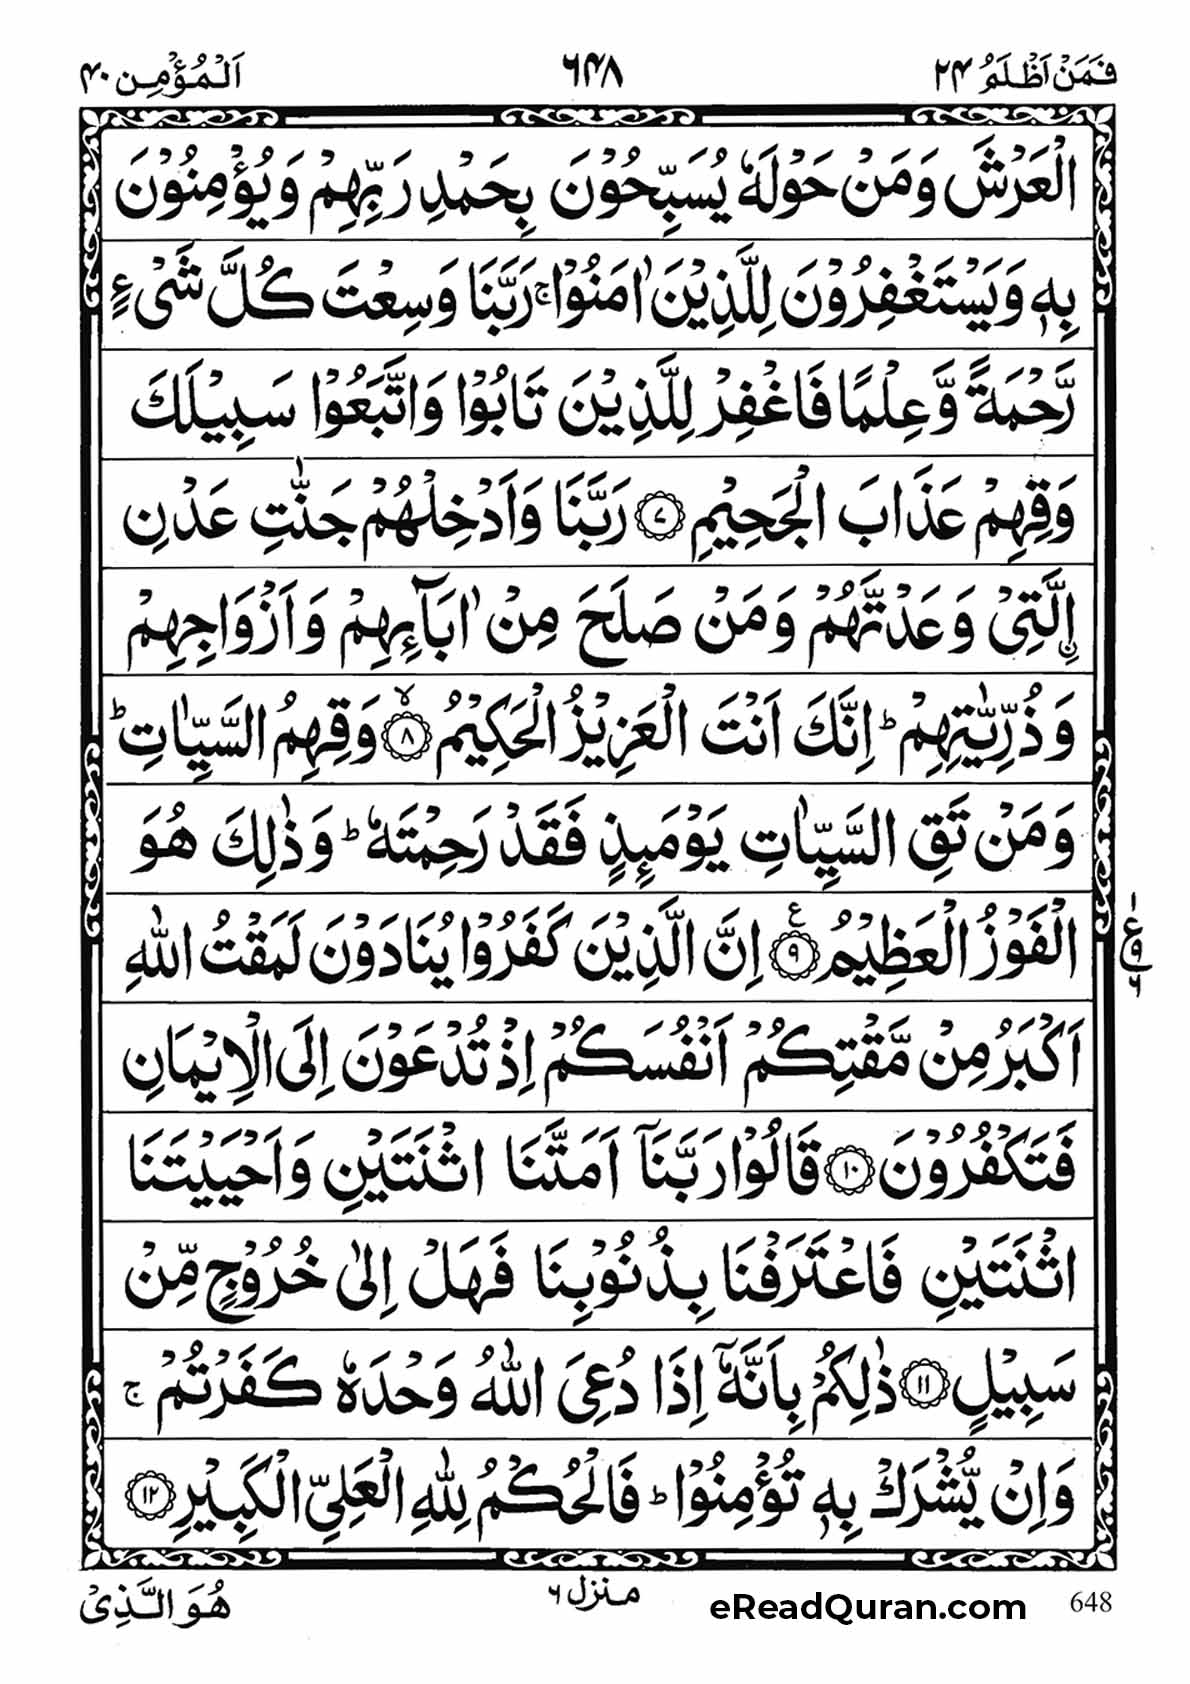 فَمَنْ اَظْلَمُ ۲۴ ۶۴۸ اَلْمُؤْمِن ۴۰
الْعَرْشَ وَمَنْ حَوْلَهٗ يُسَبِّحُوْنَ بِحَمْدِ رَبِّهِمْ وَيُؤْمِنُوْنَ
بِهٖ وَيَسْتَغْفِرُوْنَ لِلَّذِيْنَ اٰمَنُوْا ۚ رَبَّنَا وَسِعْتَ كُلَّ شَیْءٍ
رَّحْمَةً وَّعِلْمًا فَاغْفِرْ لِلَّذِيْنَ تَابُوْا وَاتَّبَعُوْا سَبِيْلَكَ
وَقِهِمْ عَذَابَ الْجَحِيْمِ ۷ رَبَّنَا وَاَدْخِلْهُمْ جَنّٰتِ عَدْنِ
ۨالَّتِیْ وَعَدْتَّهُمْ وَمَنْ صَلَحَ مِنْ اٰبَآئِهِمْ وَاَزْوَاجِهِمْ
وَذُرِّيّٰتِهِمْ ؕ اِنَّكَ اَنْتَ الْعَزِيْزُ الْحَكِيْمُ ۸ۙ وَقِهِمُ السَّيِّاٰتِ ؕ
وَمَنْ تَقِ السَّيِّاٰتِ يَوْمَئِذٍ فَقَدْ رَحِمْتَهٗ ؕ وَذٰلِكَ هُوَ
الْفَوْزُ الْعَظِيْمُ ۹ ع اِنَّ الَّذِيْنَ كَفَرُوْا يُنَادَوْنَ لَمَقْتُ اللّٰهِ
اَكْبَرُ مِنْ مَّقْتِكُمْ اَنْفُسَكُمْ اِذْ تُدْعَوْنَ اِلَی الْاِيْمَانِ
فَتَكْفُرُوْنَ ۱۰ قَالُوْا رَبَّنَآ اَمَتَّنَا اثْنَتَيْنِ وَاَحْيَيْتَنَا
اثْنَتَيْنِ فَاعْتَرَفْنَا بِذُنُوْبِنَا فَهَلْ اِلٰی خُرُوْجٍ مِّنْ
سَبِيْلٍ ۱۱ ذٰلِكُمْ بِاَنَّهٗٓ اِذَا دُعِیَ اللّٰهُ وَحْدَهٗ كَفَرْتُمْ ۚ
وَاِنْ يُّشْرَكْ بِهٖ تُؤْمِنُوْا ؕ فَالْحُكْمُ لِلّٰهِ الْعَلِیِّ الْكَبِيْرِ ۱۲
۱ ع ۹ ۶
هُوَ الَّذِیْ منزل ۶ eReadQuran.com 648